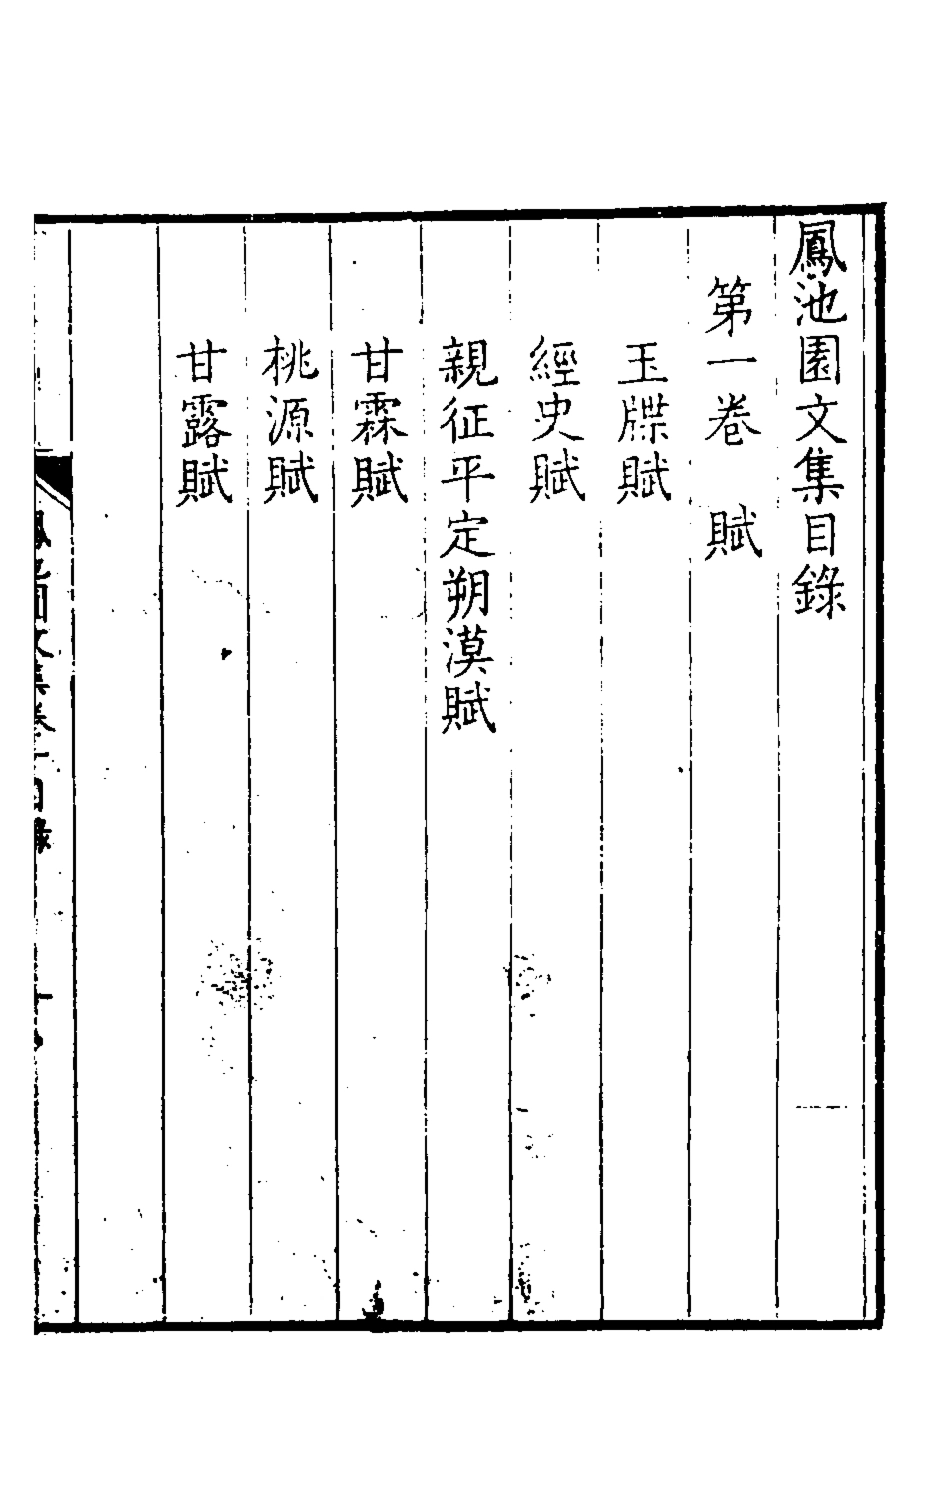 鳳池園文集目錄
第一卷　賦
玉牒賦
經史賦
親征平定朔漠賦
甘霖賦
桃源賦
甘露賦